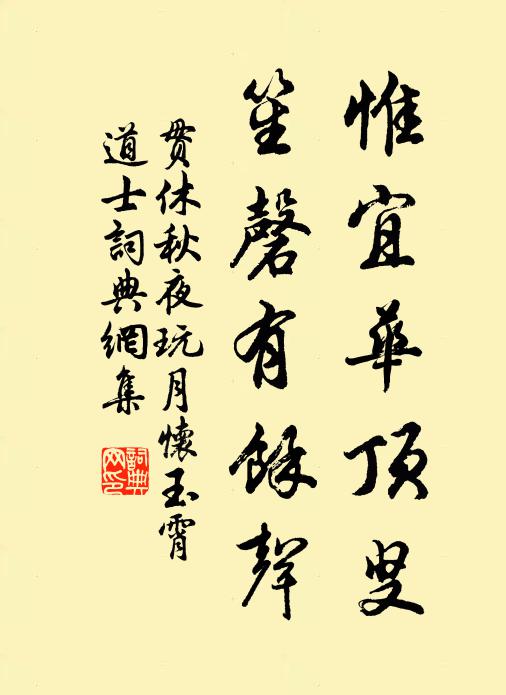 惟宜華頂叟
笙磬有餘聲
貫休秋夜玩月懷玉霄
道士詞典網集
詞典网印